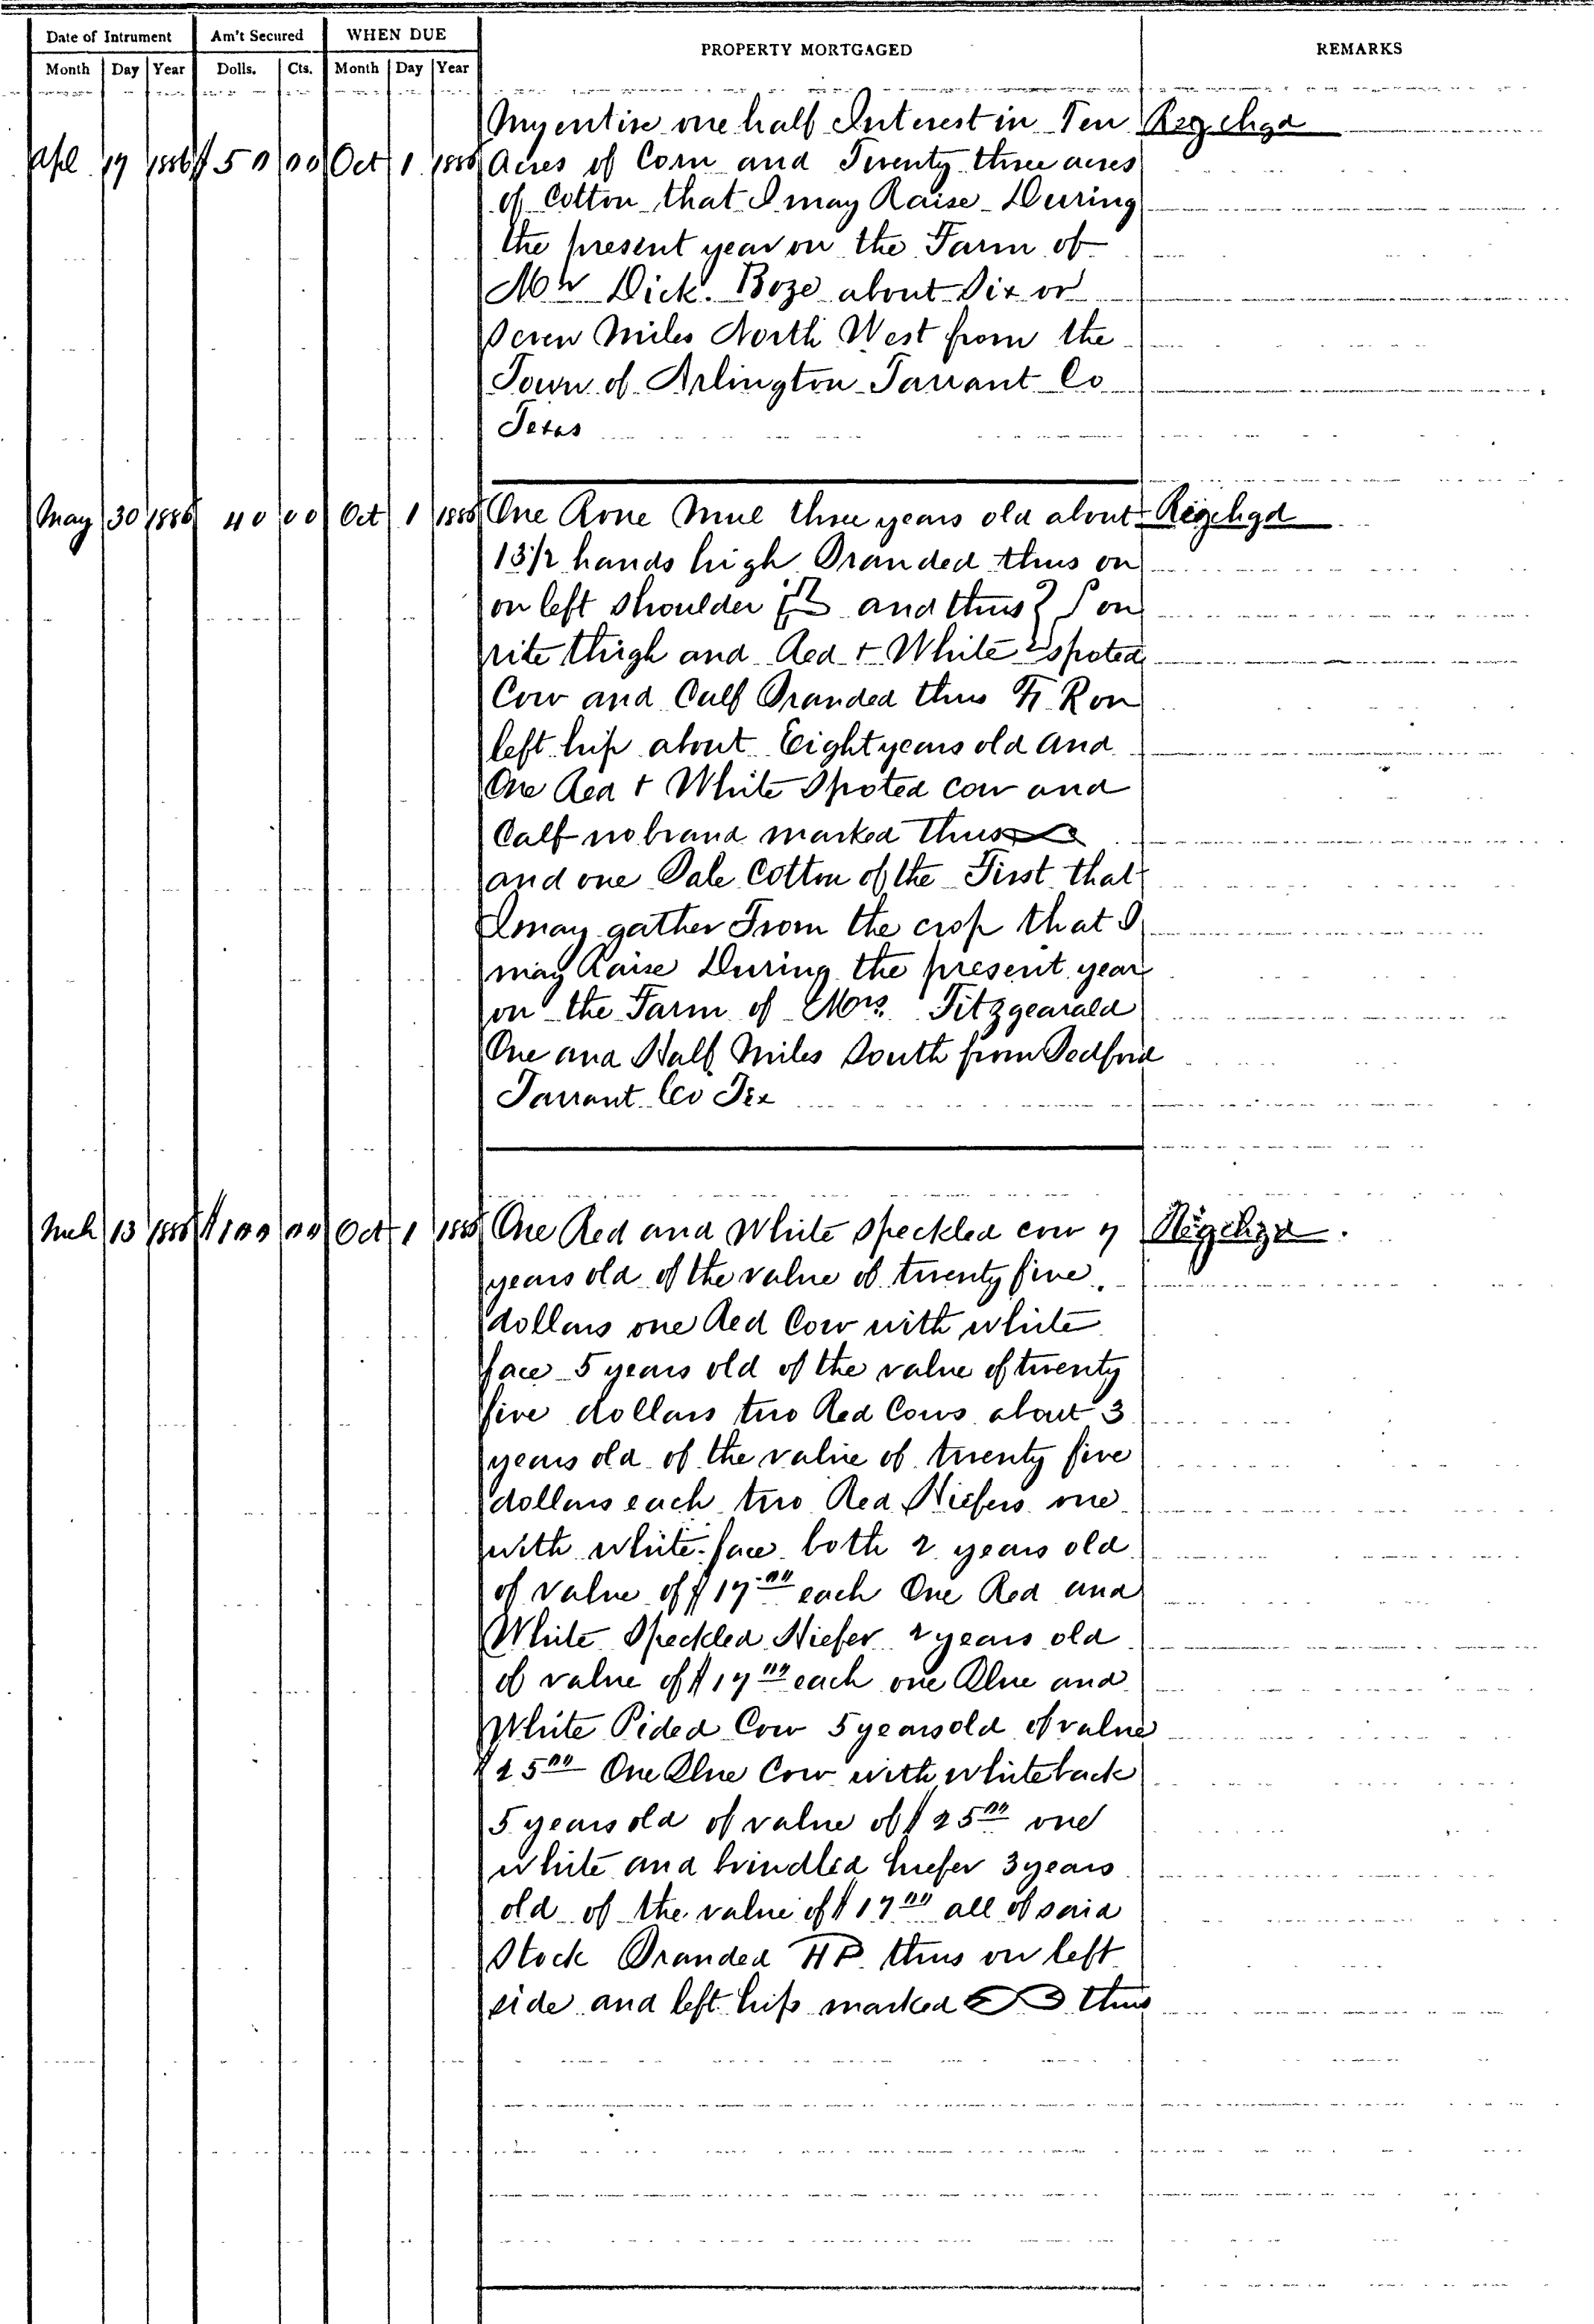 Date of Intrument Am't Secured WHEN DUE PROPERTY MORTGAGED REMARKS
Month Day Year Dolls. Cts. Month Day Year
My entire one half Interest in Ten
Apl 17 1886 $50 00 Oct 1 1886 Acres of Corn and Twenty three acres
of Cotton that I may Raise During
the present year on the Farm of
Mr Dick Boze about Six or
Seven Miles North West from the
Town of Arlington Tarrant Co
Texas
May 30 1886 40 00 Oct 1 1886 One Rone Mule three years old about
13 1/2 hands high Branded thus on
on left Shoulder and thus on
rite thigh and Red + White spoted
Cow and Calf Branded thus on
left hip about Eight years old and
One Red + White Spoted cow and
Calf no brand marked thus
and one Bale Cotton of the First that
I may gather From the crop that I
may Raise During the present year
on the Farm of Mrs Fitzgearald
One and Half Miles South from Bedford
Tarrant Co Tex
Mch 13 1886 $100 00 Oct 1 1886 One Red and White Speckled cow 7
years old of the value of twenty five
dollars one Red Cow with white
face 5 years old of the value of twenty
five dollars two Red Cows about 3
years old of the value of twenty five
dollars each two Red Hiefers one
with white face both 2 years old
of value of $17.00 each One Red and
White Speckled Hiefer 2 years old
of value of $17 00 each one Blue and
White Pided Cow 5 years old of value
$25 00 One Blue Cow with white back
5 years old of value of $25 00 one
white and brindled hiefer 3 years
old of the value of $17 00 all of said
Stock Branded HP thus on left
side and left hip marked thus